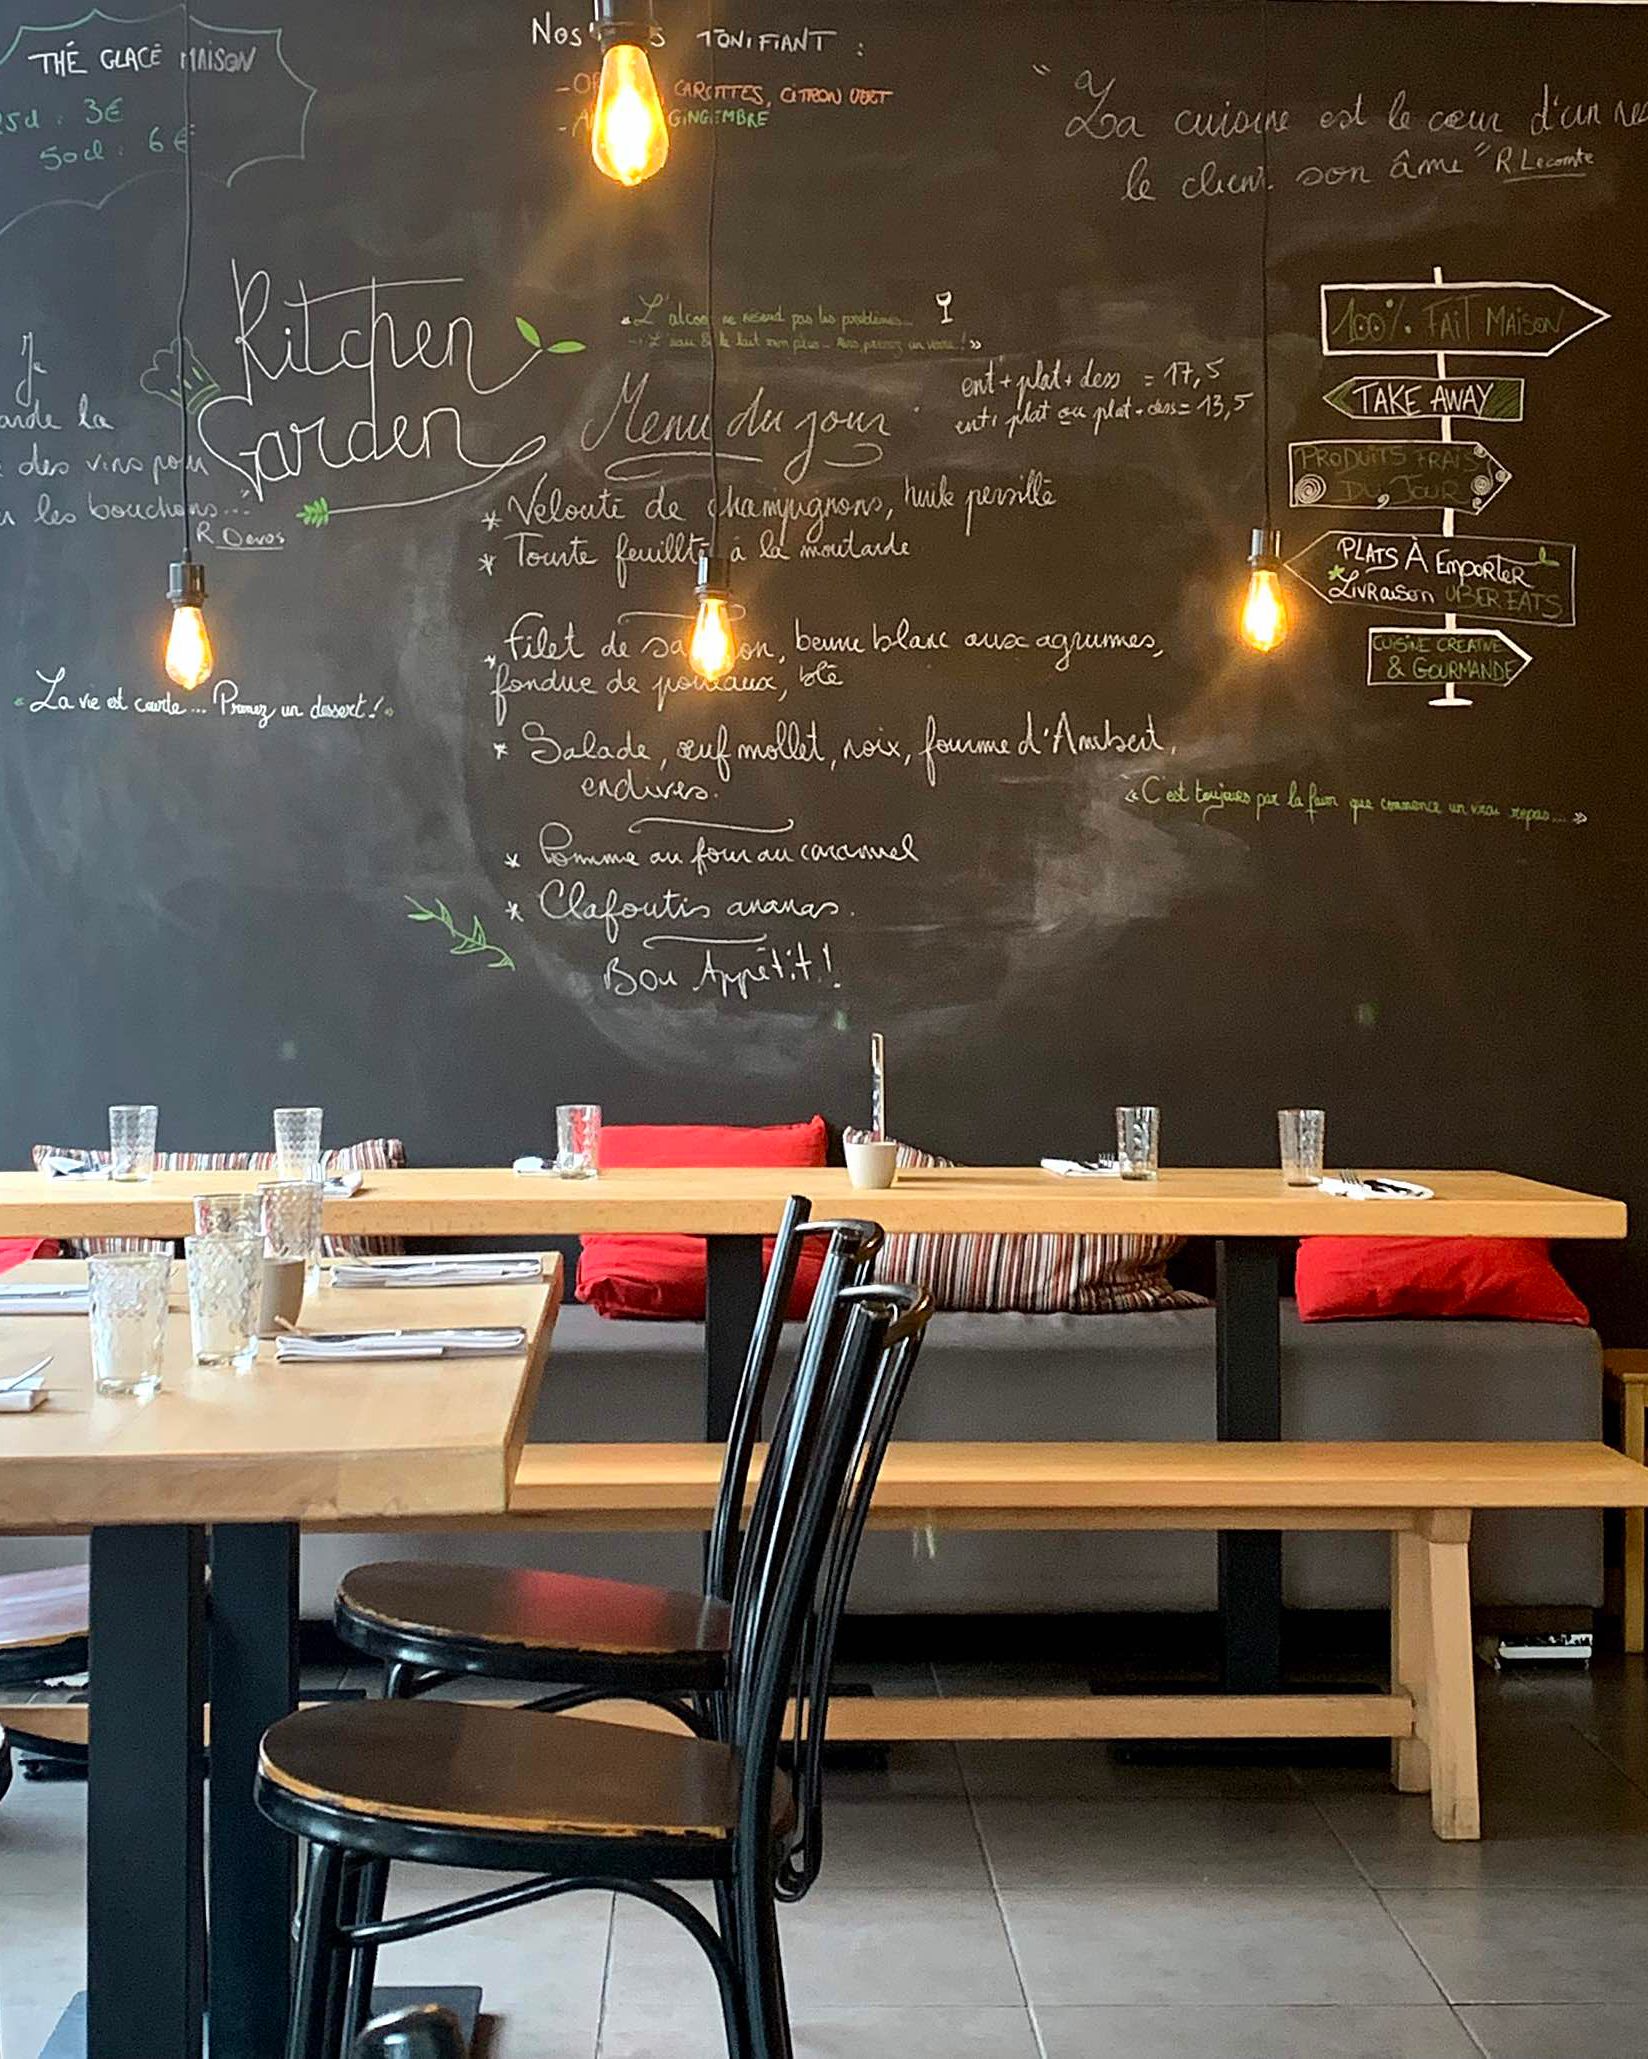 THÉ GLACÉ MAISON
25cl : 3€
50cl : 6€
Nos TONIFIANT :
CAROTTES, CITRON VERT
GINGEMBRE
"La cuisine est le cœur d'un
le client son âme" R. Lecomte
Je
la
des vins pour
les bouchons..."
R Devos
Kitchen
Garden
"L'alcool ne résoud pas les problèmes...
L'eau & le lait non plus... Alors prenez un verre!"
Menu du jour
ent + plat + dess = 17,5
ent + plat ou plat + dess = 13,5
* Velouté de champignons, huile persillé
* Tourte feuillté à la moutarde
* Filet de saumon, beurre blanc aux agrumes,
fondue de poireaux, blé
* Salade, œuf mollet, noix, fourme d'Ambert,
endives.
* Pomme au four au caramel
* Clafoutis ananas.
Bon Appétit !
"La vie est courte... Prenez un dessert!"
100% FAIT MAISON
TAKE AWAY
PRODUITS FRAIS
DU JOUR
PLATS À EMPORTER
LIVRAISON UBER EATS
CUISINE CREATIVE
& GOURMANDE
"C'est toujours par la faim que commence un vrai repas..."